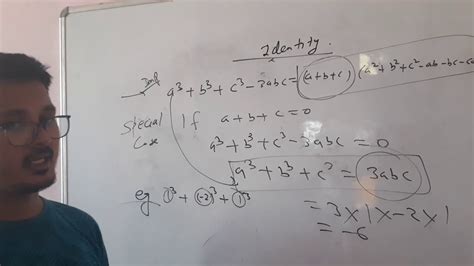 Identity
a³ + b³ + c³ - 3abc = (a+b+c) (a² + b² + c² - ab - bc - ca
Special If a + b + c = 0
Case a³ + b³ + c³ - 3abc = 0
a³ + b³ + c³ = 3abc
eg 1³ + (-2)³ + 1³
= 3 × 1 × -2 × 1
= -6